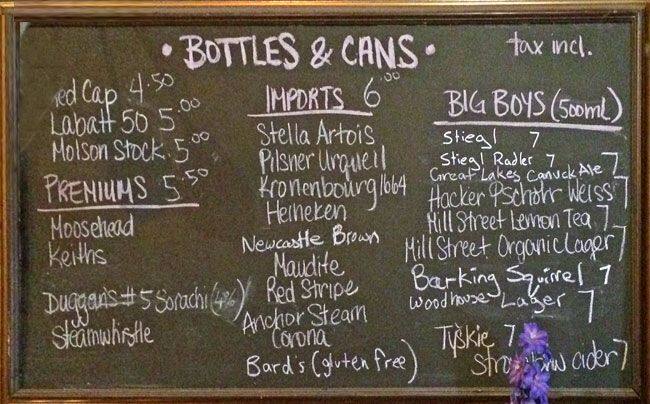 • BOTTLES & CANS •
tax incl.
Red Cap 4.50
Labatt 50 5.00
Molson Stock. 5.00
PREMIUMS 5.50
Moosehead
Keiths
Duggan's #5 Sorachi (4%)
Steamwhistle
IMPORTS 6.00
Stella Artois
Pilsner Urquell
Kronenbourg 1664
Heineken
Newcastle Brown
Maudite
Red Stripe
Anchor Steam
Corona
Bard's (gluten free)
BIG BOYS (500ml)
Stiegl 7
Stiegl Radler 7
Great Lakes Canuck Ale 7
Hacker Pschorr Weiss 7
Mill Street Lemon Tea 7
Mill Street Organic Lager 7
Barking Squirrel 7
Woodhouse Lager 7
Tyškie 7
cider 7